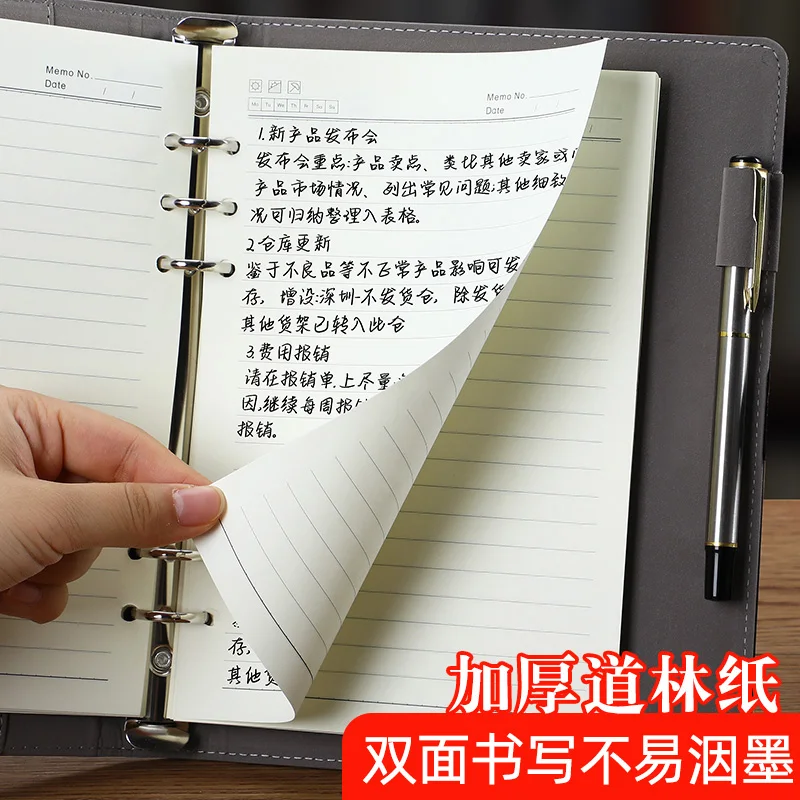 Memo No.
Date / /
Mo Tu We Th Fr Sa Su
Memo No.
Date
1.新产品发布会
发布会重点:产品卖点、类比其他卖家或
产品市场情况、列出常见问题;其他细致
况可归纳整理入表格。
2仓库更新
鉴于不良品等不正常产品影响可发
存,增设:深圳-不发货仓,除发货
其他货架已转入此仓
3.费用报销
请在报销单上尽量
因,继续每周报销
报销。
存,
其他
加厚道林纸
双面书写不易洇墨